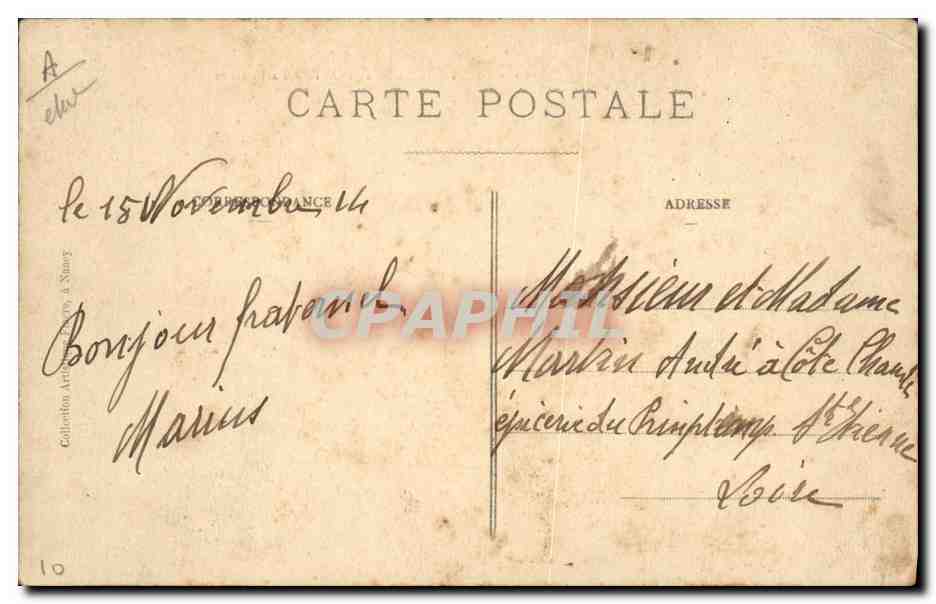 A
CARTE POSTALE
CORRESPONDANCE
ADRESSE
le 15 Novembre 14
Bonjour fraternel
Marius
Monsieur et Madame
Martin André à Côte Chaude
épicerie du Printemp St Etienne
Loire
Collection Artistique, à Nancy
CPAPHIL
10